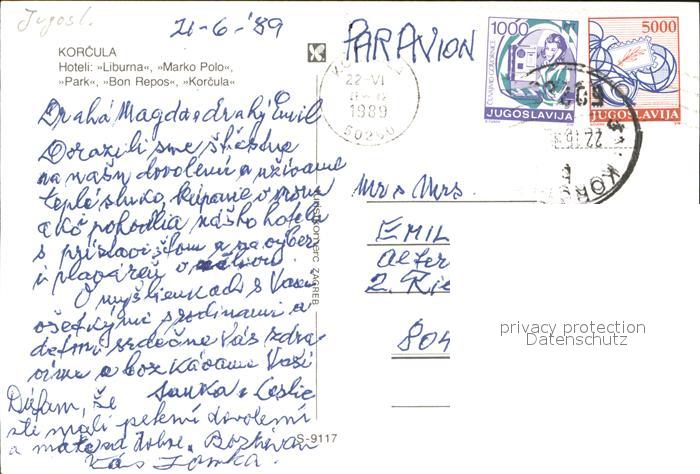 Jugosl.
21-6-'89
KORČULA
Hoteli: »Liburna«, »Marko Polo«,
»Park«, »Bon Repos«, »Korčula«
PAR AVION
1000
JUGOSLAVIJA
5000
JUGOSLAVIJA
22-VI
1989
50260
Drahá Magda a drahý Emil
Dorazili sme štastne
na našu dovolenú a užívame
teplé slnko, kúpanie v mori
a kde pohodlia nášho hotela
s prístavišťom a na výber
i plaváreň v
O myšlienkach s Vami
všetkými s rodinami a
deťmi srdečne Vás zdra-
víme a bozkávame Vaši
Janka a Leslie
Dúfam, že
ste mali peknú dovolenú
a máte sa dobre. Bozkávam
Vás Janka.
Mr & Mrs.
EMIL
2.
804
ZAGREB
S-9117
privacy protection
Datenschutz